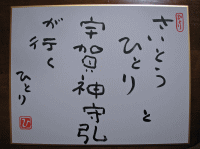 さいとう
ひとり
と
宇賀神守弘
が行く
ひとり